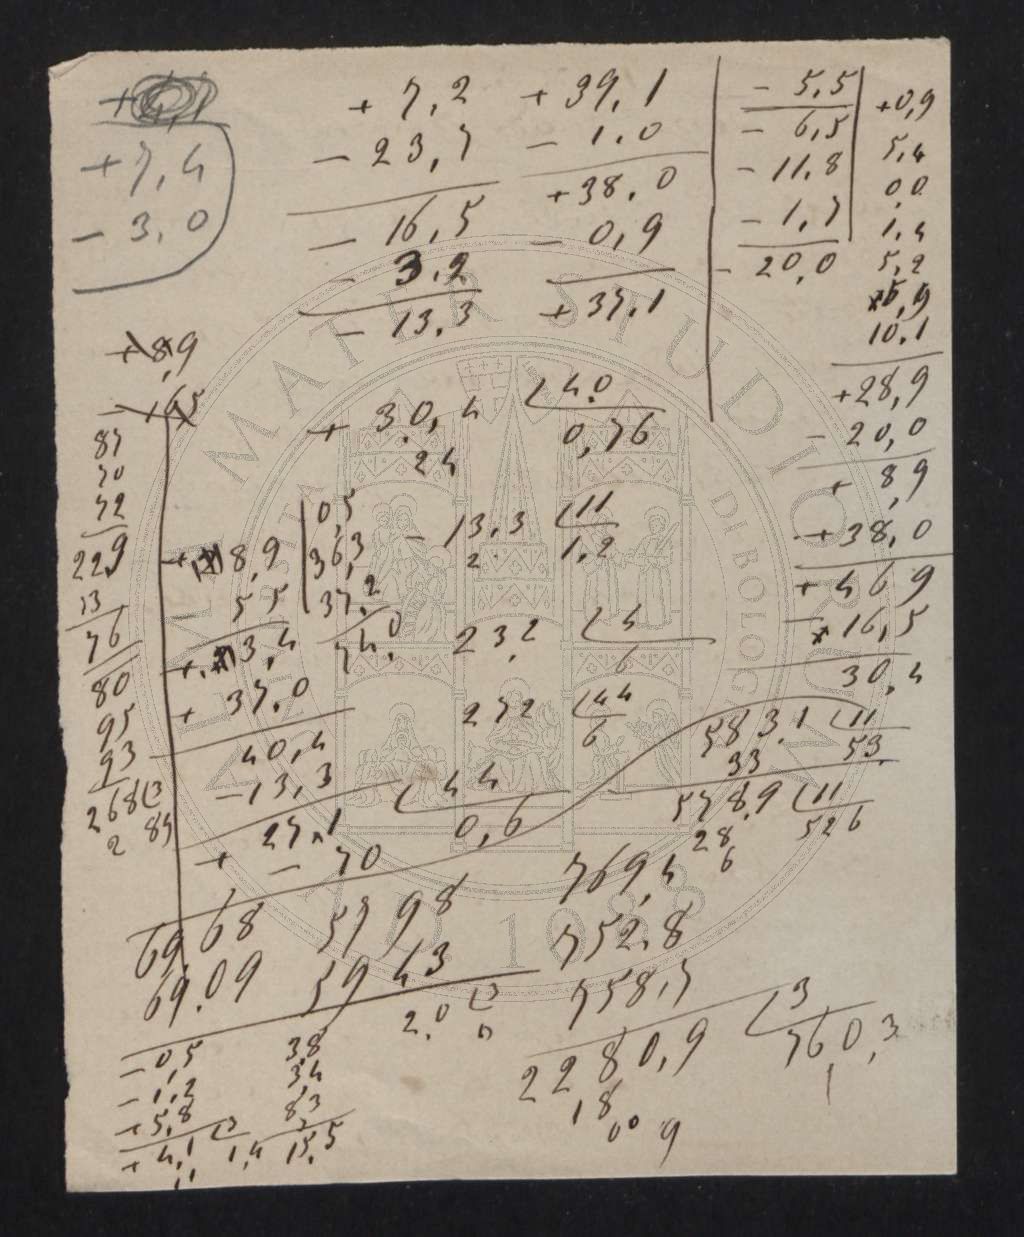 + 7,4
- 3,0
+ 7,2
- 23,7
- 16,5
- 3,2
- 13,3
+ 39,1
- 1.0
+ 38,0
- 0,9
+ 37,1
- 5,5
- 6,5
- 11,8
- 1,7
- 20,0
+0,9
5,4
0,0
1,4
5,2
5,9
10,1
+28,9
- 20,0
+ 8,9
+38,0
+ 46,9
- 16,5
30,4
+ 8,9
87
70
72
229
13
76
80
95
93
268 3
2 89
+ 30,4 40
24 0,76
+ 8,9
- 5,5
+ 3,4
+ 37.0
40,4
- 13,3
+ 27,1 44
0,6
- 70
0,5
36,3
37,2
74,0
- 13,3 11
2 1,2
23,2 4
6
272 44
6
583,1 11
33 53
578,9 11
28 526
6
69,68
69.09
59 98
59 43
2,0 3
- 0,5
- 1,2
+ 5,8
+ 4,1 3
1,4
11
3,8
3,4
8 3
15,5
769,4
752,8
758,7
2280,9 3
18 760,3
00 9
1
ALMA MATER STUDIORUM
UNIVERSITAS DI BOLOGNA
A.D. 1088